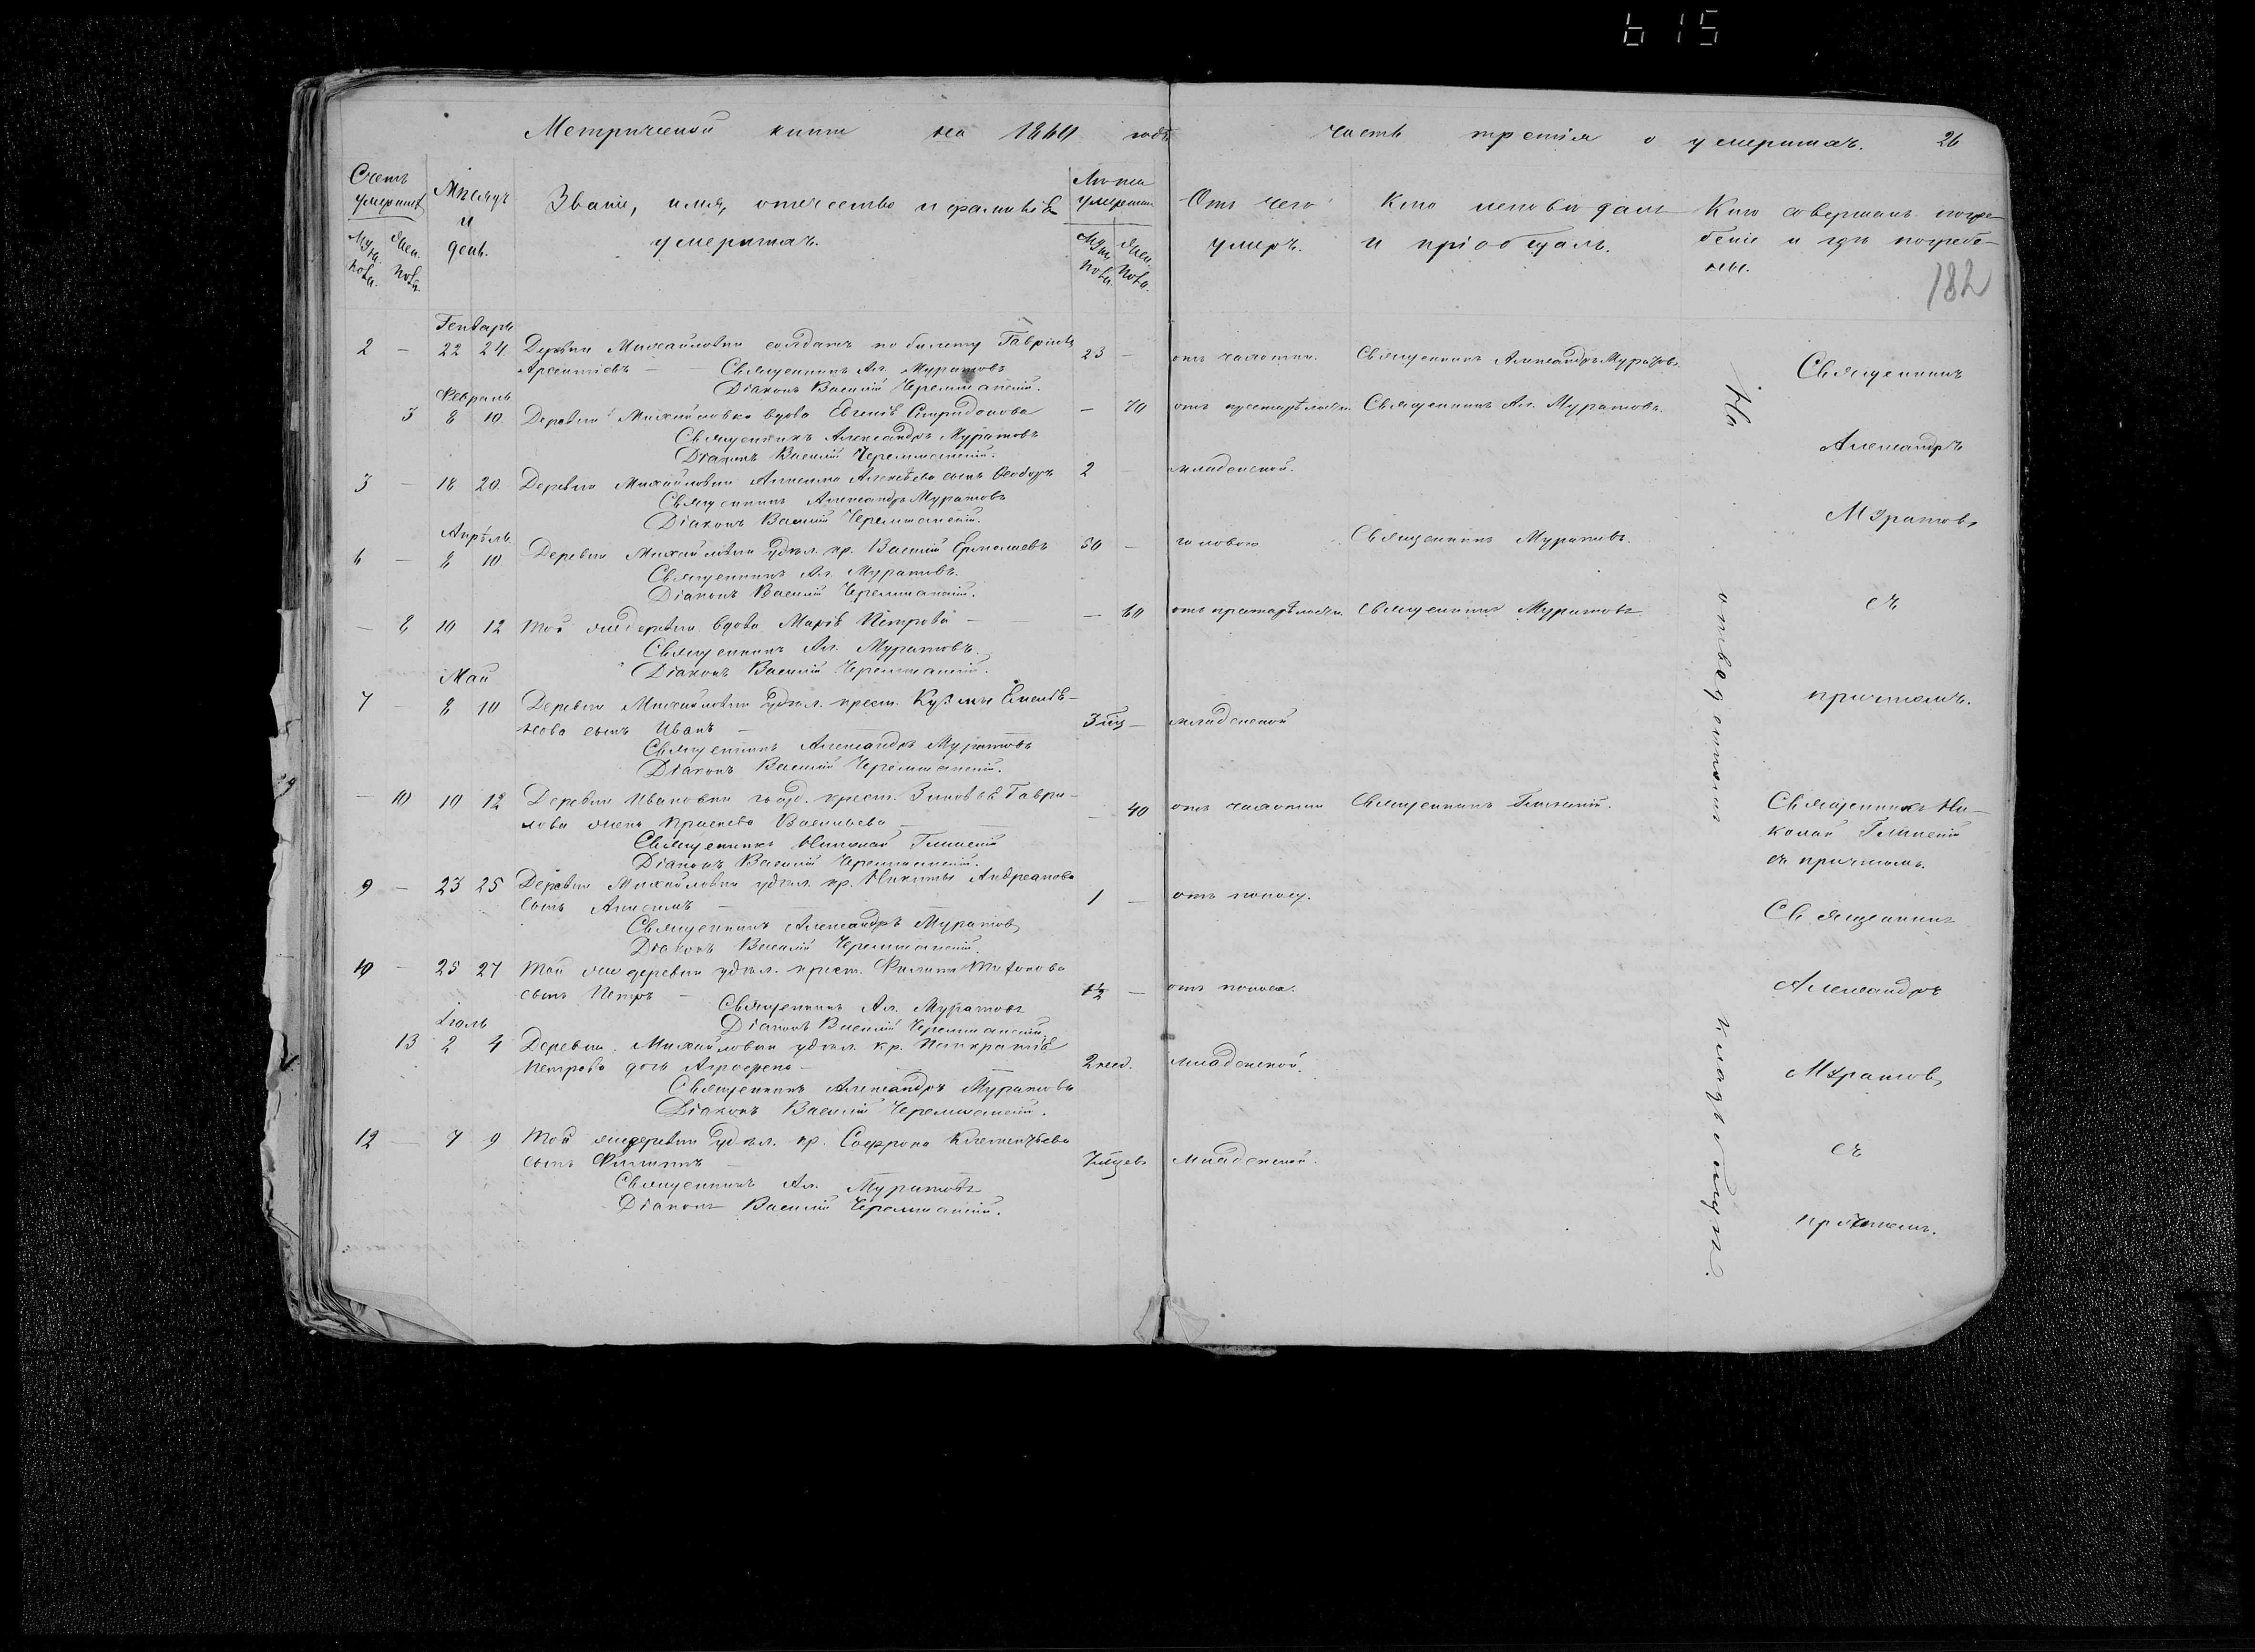 615
Метрической книги на 1860 годъ часть третія о умершихъ. 26
Счетъ умершихъ
Мужеска. Женска.
Мѣсяцъ и день.
Званіе, имя, отчество и фамилія умершихъ.
Лѣта умершихъ
Мужеска. Женска.
Отъ чего умеръ.
Кто исповѣдалъ и пріобщалъ.
Кто совершалъ погребеніе и гдѣ погребены.
182
Генварь
2 — 22 24 Деревни Михайловки солдатъ по билету Гавріилъ 23 — отъ чахотки. Священникъ Александръ Муратовъ.
Арсентіевъ — Священникъ Ал. Муратовъ
Діаконъ Василій Черемшанскій.
Февраль
3 8 10. Деревни Михайловки вдова Евгенія Спиридонова — 70 отъ престарѣлости. Священникъ Ал. Муратовъ.
Священникъ Александръ Муратовъ
Діаконъ Василій Черемшанскій.
3 — 18 20. Деревни Михайловки Алексѣева сынъ Ѳеодоръ 2 — младенской.
Священникъ Александръ Муратовъ
Діаконъ Василій Черемшанскій.
Апрѣль
6 — 8 10 Деревни Михайловки удѣл. кр. Василій Ермолаевъ 50 — Священникъ Муратовъ.
Священникъ Ал. Муратовъ.
Діаконъ Василій Черемшанскій.
— 8 10 12 Той же деревни вдова Марія Петрова — — 60 отъ престарѣлости. Священникъ Муратовъ
Священникъ Ал. Муратовъ.
Діаконъ Василій Черемшанскій.
Май
7 — 8 10 Деревни Михайловки удѣл. крест. Кузмы Емелья-
нова сынъ Иванъ — 3 мц — младенской
Священникъ Александръ Муратовъ
Діаконъ Василій Черемшанскій.
— 10 10 12 Деревни Ивановки госуд. крест. Зиновія Гаври- — 40 отъ чахотки Священникъ Глинскій.
лова жена Васильева —
Священникъ Николай Глинскій
Діаконъ Василій Черемшанскій.
9 — 23 25 Деревни Михайловки удѣл. кр. Никиты Андреанова 1 — отъ поносу.
сынъ —
Священникъ Александръ Муратовъ
Діаконъ Василій Черемшанскій.
10 — 25 27 Той же деревни удѣл. крест. Филипа
сынъ Петръ — 1½ — отъ поноса.
Священникъ Ал. Муратовъ
Діаконъ Василій Черемшанскій.
Іюль
13 2 4 Деревни Михайловки удѣл. кр. Панкратія
Петрова дочь Агрофена — 2 нед. младенской.
Священникъ Александръ Муратовъ
Діаконъ Василій Черемшанскій.
12 — 7 9 Той же деревни удѣл. кр. Софрона Клементьева
сынъ Филиппъ — 7 мцевъ младенской.
Священникъ Ал. Муратовъ
Діаконъ Василій Черемшанскій.
На отведенномъ кладбищѣ.
Священникъ
Александръ
Муратовъ
съ
причтомъ.
Священникъ Ни-
колай Глинскій
съ причтомъ.
Священникъ
Александръ
Муратовъ
съ
причтомъ.